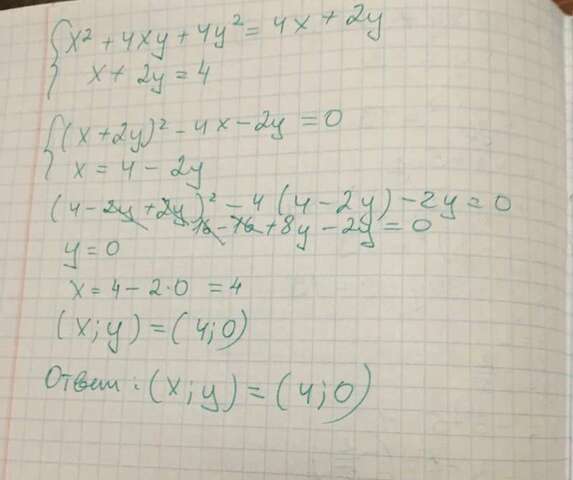 x² + 4xy + 4y² = 4x + 2y
x + 2y = 4
(x + 2y)² - 4x - 2y = 0
x = 4 - 2y
(4 - 2y + 2y)² - 4(4 - 2y) - 2y = 0
16 - 16 + 8y - 2y = 0
y = 0
x = 4 - 2·0 = 4
(x; y) = (4; 0)
Ответ: (x; y) = (4; 0)